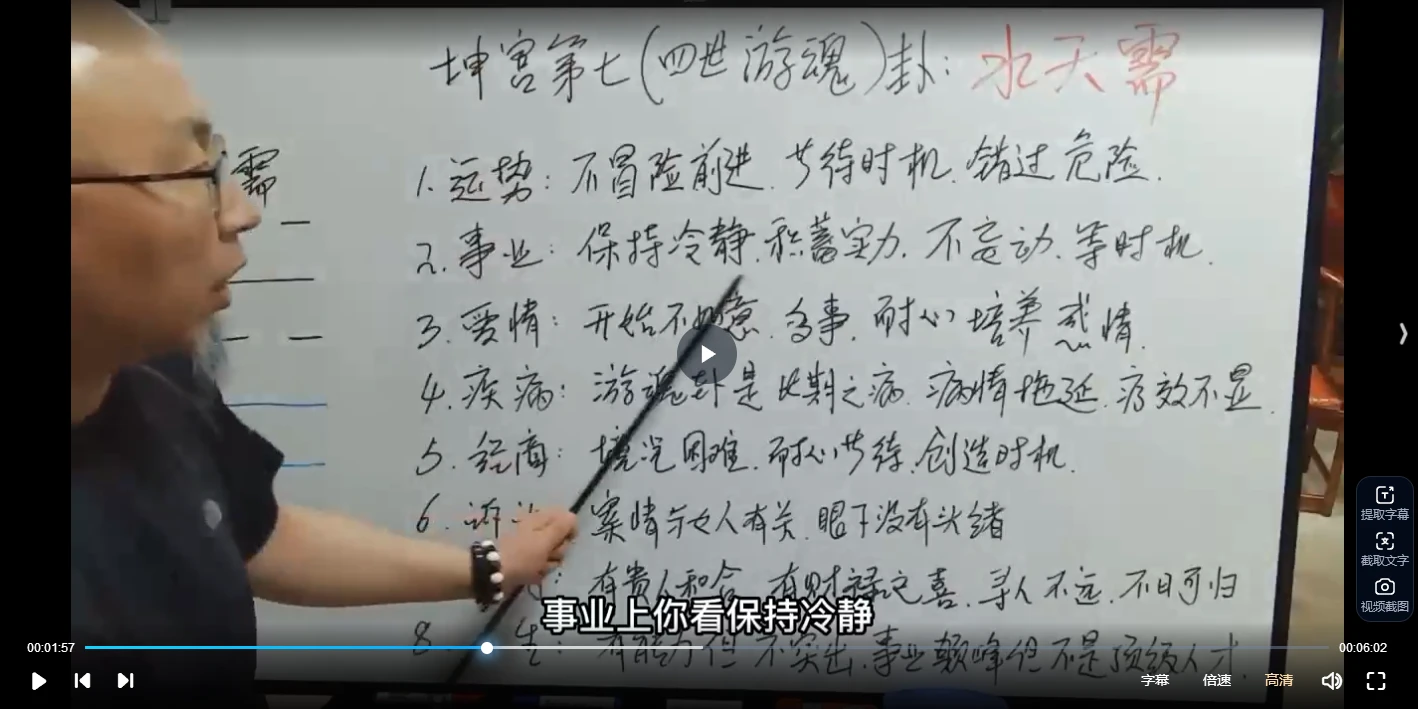 坤宫第七(四世游魂)卦:水天需
需
1.运势:不冒险前进.等待时机.错过危险.
2.事业:保持冷静.积蓄实力.不妄动.等时机.
3.爱情:开始不如意.多事.耐心培养感情.
4.疾病:游魂卦是长期之病.病情拖延.疗效不显.
5.经商:境况困难.耐心等待.创造时机.
6.诉 案情与女人有关.眼下没有头绪
:有贵人和合.有财禄之喜.寻人不远.不日可归
事业上你看保持冷静
8. 生:有能力但不突出.事业颠峰但不是顶级人才.
提取字幕
截取文字
视频截图
00:01:57
00:06:02
字幕 倍速 高清